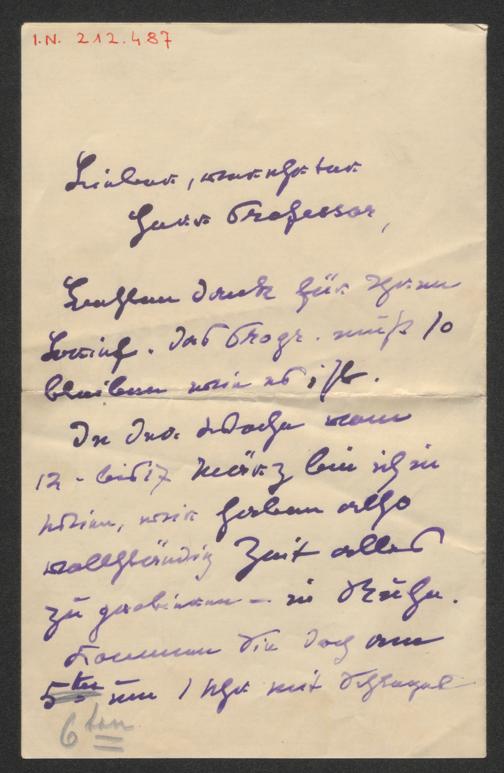 I.N. 212.487
Lieber, verehrter
Herr Professor,
Besten Dank für Ihren
Brief. Das Progr. muß so
bleiben wie es ist.
In der Woche vom
12 - bis 17 März bin ich in
Wien, wir haben also
vollständig Zeit alles
zu probieren – in Ruhe.
Kommen Sie doch am
5ten um 1 Uhr mit
6ten